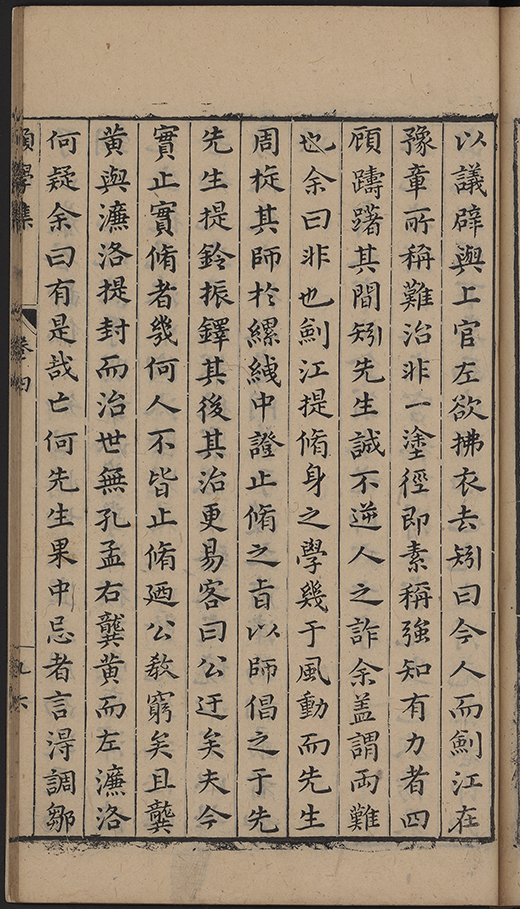 以議辟與上官左欲拂衣去矧曰今人而劍江在
豫章所稱難治非一塗徑即素稱強知有力者四
顧躊躇其間矧先生誠不逆人之詐余盖謂両難
也余曰非也劍江提脩身之學幾于風動而先生
周㝎其師於縲綫中證止脩之旨以師倡之于先
先生提鈴振鐸其後其治更易客曰公迂矣夫今
實止實脩者幾何人不皆止脩廼公教窮矣且龔
黄與濂洛提封而治世無孔孟右龔黄而左濂洛
何疑余曰有是哉亡何先生果中忌者言淂調鄒
願學集
卷四